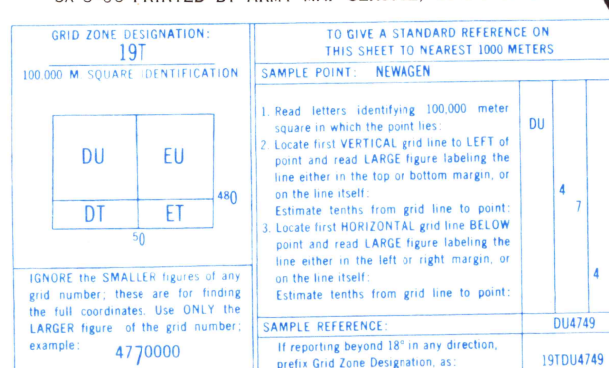 GRID ZONE DESIGNATION:
19T
100,000 M SQUARE IDENTIFICATION
DU EU
DT ET
480
50
IGNORE the SMALLER figures of any
grid number; these are for finding
the full coordinates. Use ONLY the
LARGER figure of the grid number;
example: 4770000
TO GIVE A STANDARD REFERENCE ON
THIS SHEET TO NEAREST 1000 METERS
SAMPLE POINT: NEWAGEN
1. Read letters identifying 100,000 meter
square in which the point lies: DU
2. Locate first VERTICAL grid line to LEFT of
point and read LARGE figure labeling the
line either in the top or bottom margin, or
on the line itself: 4
Estimate tenths from grid line to point: 7
3. Locate first HORIZONTAL grid line BELOW
point and read LARGE figure labeling the
line either in the left or right margin, or
on the line itself: 4
Estimate tenths from grid line to point:
SAMPLE REFERENCE: DU4749
If reporting beyond 18° in any direction,
prefix Grid Zone Designation, as: 19TDU4749